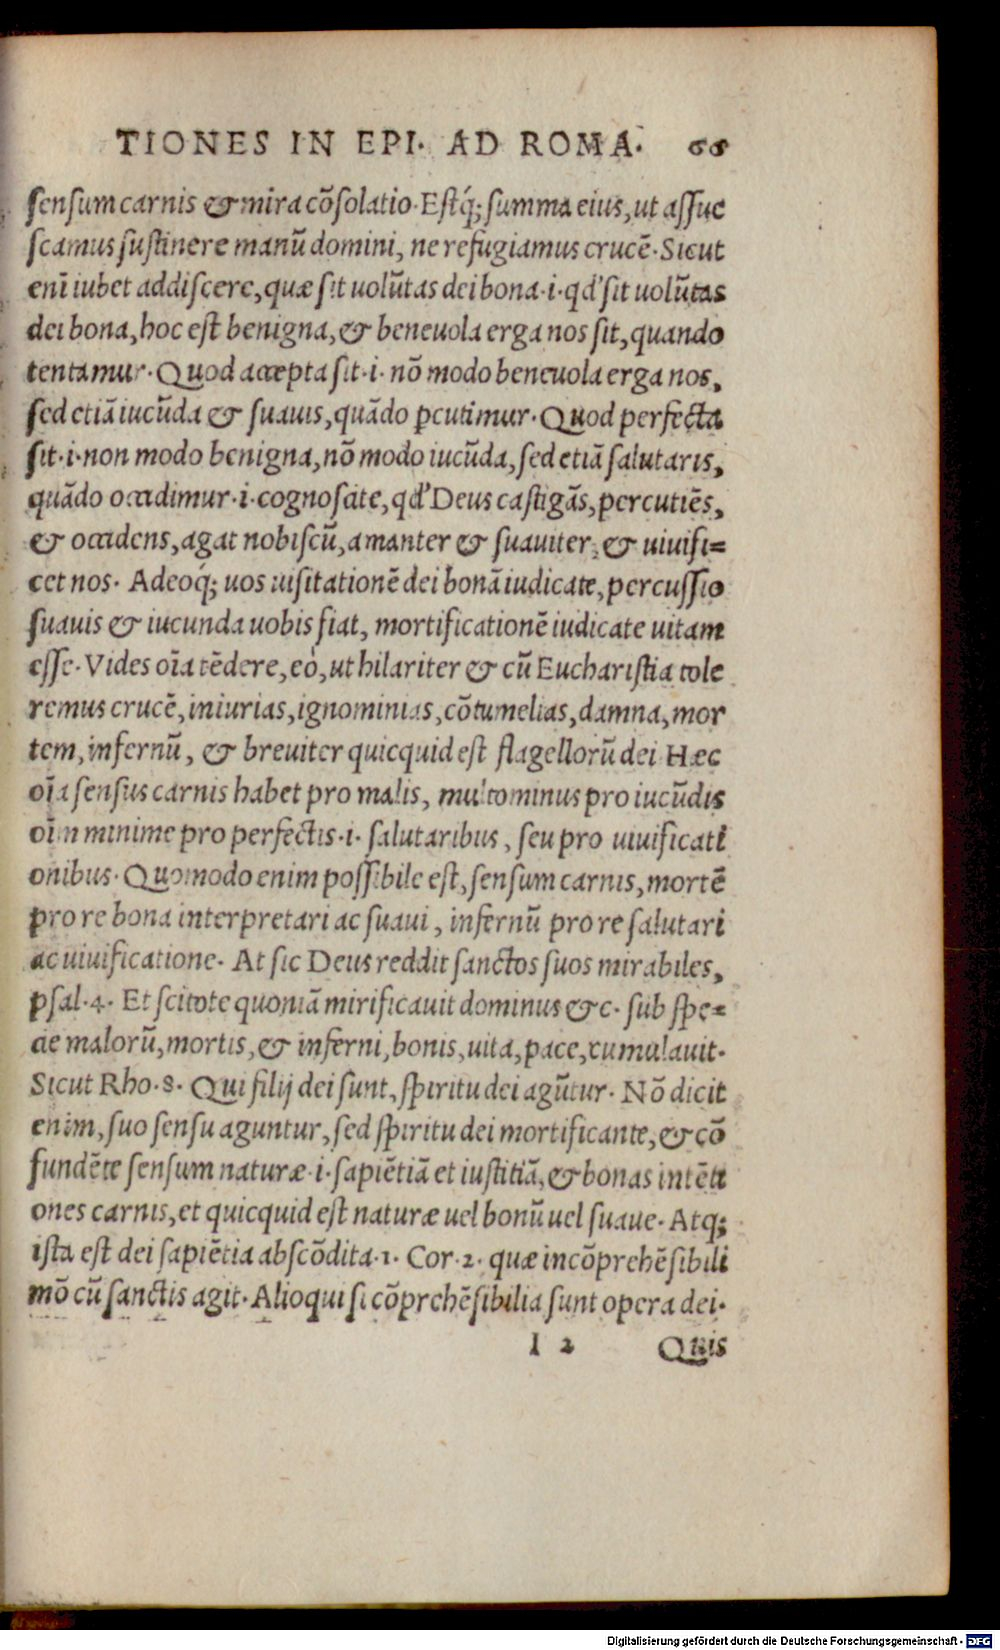 TIONES IN EPI. AD ROMA. 66
sensum carnis & mira cõsolatio. Estq́; summa eius, ut assue
scamus sustinere manũ domini, ne refugiamus crucẽ. Sicut
enĩ iubet addiscere, quæ sit uolũtas dei bona .i. qd' sit uolũtas
dei bona, hoc est benigna, & beneuola erga nos sit, quando
tentamur. Quod accepta sit .i. nõ modo beneuola erga nos,
sed etiã iucũda & suauis, quãdo pcutimur. Quod perfecta
sit .i. non modo benigna, nõ modo iucũda, sed etiã salutaris,
quãdo occidimur .i. cognoscite, qd' Deus castigãs, percutiẽs,
& occidens, agat nobiscũ, amanter & suauiter, & uiuifi=
cet nos. Adeoq́; uos uisitationẽ dei bonã iudicate, percussio
suauis & iucunda uobis fiat, mortificationẽ iudicate uitam
esse. Vides oĩa tẽdere, eò, ut hilariter & cũ Eucharistia tole
remus crucẽ, iniurias, ignominias, cõtumelias, damna, mor
tem, infernũ, & breuiter quicquid est flagellorũ dei Hæc
oĩa sensus carnis habet pro malis, multominus pro iucũdis
oĩm minime pro perfectis .i. salutaribus, seu pro uiuificati
onibus. Quomodo enim possibile est, sensum carnis, mortẽ
pro re bona interpretari ac suaui, infernũ pro re salutari
ac uiuificatione. At sic Deus reddit sanctos suos mirabiles,
psal. 4. Et scitote quoniã mirificauit dominus &c. sub spe=
cie malorũ, mortis, & inferni, bonis, uita, pace, cumulauit.
Sicut Rho. 8. Qui filij dei sunt, spiritu dei agũtur. Nõ dicit
enim, suo sensu aguntur, sed spiritu dei mortificante, & cõ
fundẽte sensum naturæ .i. sapiẽtiã et iustitiã, & bonas intẽti
ones carnis, et quicquid est naturæ uel bonũ uel suaue. Atq;
ista est dei sapiẽtia abscõdita .1. Cor. 2. quæ incõprehẽsibili
mõ cũ sanctis agit. Alioqui si cõprehẽsibilia sunt opera dei.
I 2 Quis
Digitalisierung gefördert durch die Deutsche Forschungsgemeinschaft - DFG